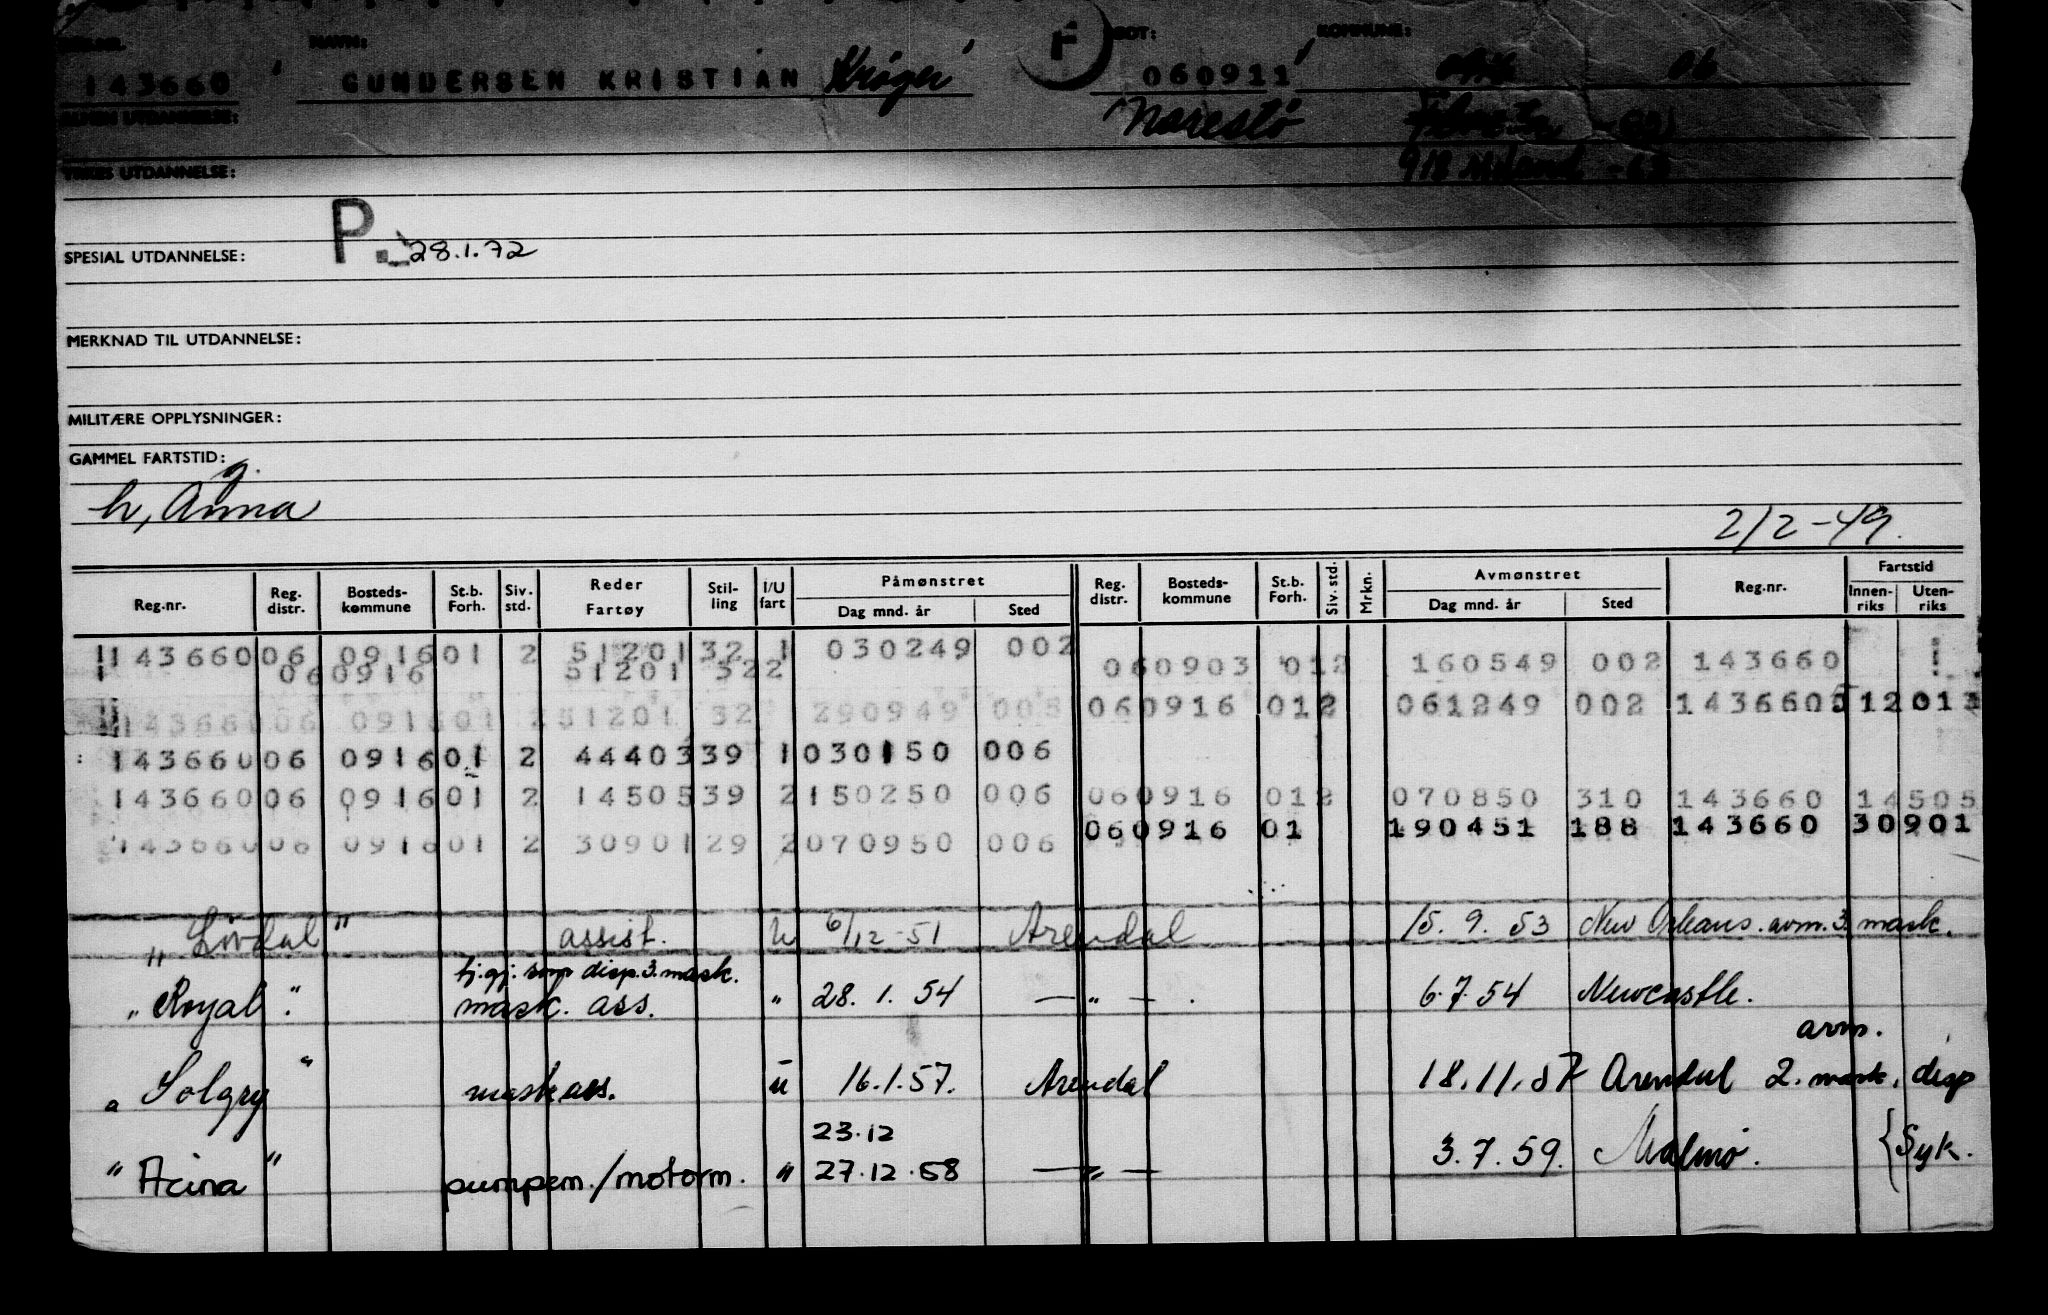 NAVN: FØDT: KOMMUNE:
143660 GUNDERSEN KRISTIAN Krøger F 060911 06
ALMEN UTDANNELSE: Narestø
YRKES UTDANNELSE: 918 Moland -63
P. 28.1.72
SPESIAL UTDANNELSE:
MERKNAD TIL UTDANNELSE:
MILITÆRE OPPLYSNINGER:
GAMMEL FARTSTID:
g.
h, Anna 2/2-49.
Reg.nr. Reg. distr. Bosteds-kommune St.b. Forh. Siv. std. Reder Fartøy Stil-ling I/U fart Påmønstret Dag mnd. år Sted Reg. distr. Bosteds-kommune St.b. Forh. Siv. std. Mrkn. Avmønstret Dag mnd. år Sted Reg.nr. Fartstid Innen-riks Uten-riks
143660 06 0916 01 2 51201 32 1 030249 002 060903 012 160549 002 143660
060916 51201 322
143660 06 0916 01 2 51201 32 290949 005 060916 012 061249 002 143660
143660 06 0916 01 2 44403 39 1 030150 006
143660 06 0916 01 2 14505 39 2 150250 006 060916 012 070850 310 143660 14505
060916 01 190451 188 143660 30901
143660 06 0916 01 2 30901 29 2 070950 006
" Lørdal " assist. u 6/12-51 Arendal 15.9.53 New Orleans. avm. 3 mask.
tj.gj. som disp. 3. mask.
" Royal " mask. ass. " 28.1.54 — " — . 6.7.54 Newcastle.
avm.
" Solgry " mask ass. u 16.1.57. Arendal 18.11.57 Arendal 2. mask, disp
23.12
" Acina " pumpem./motorm. " 27.12.58 — " — 3.7.59. Malmö. {Syk.